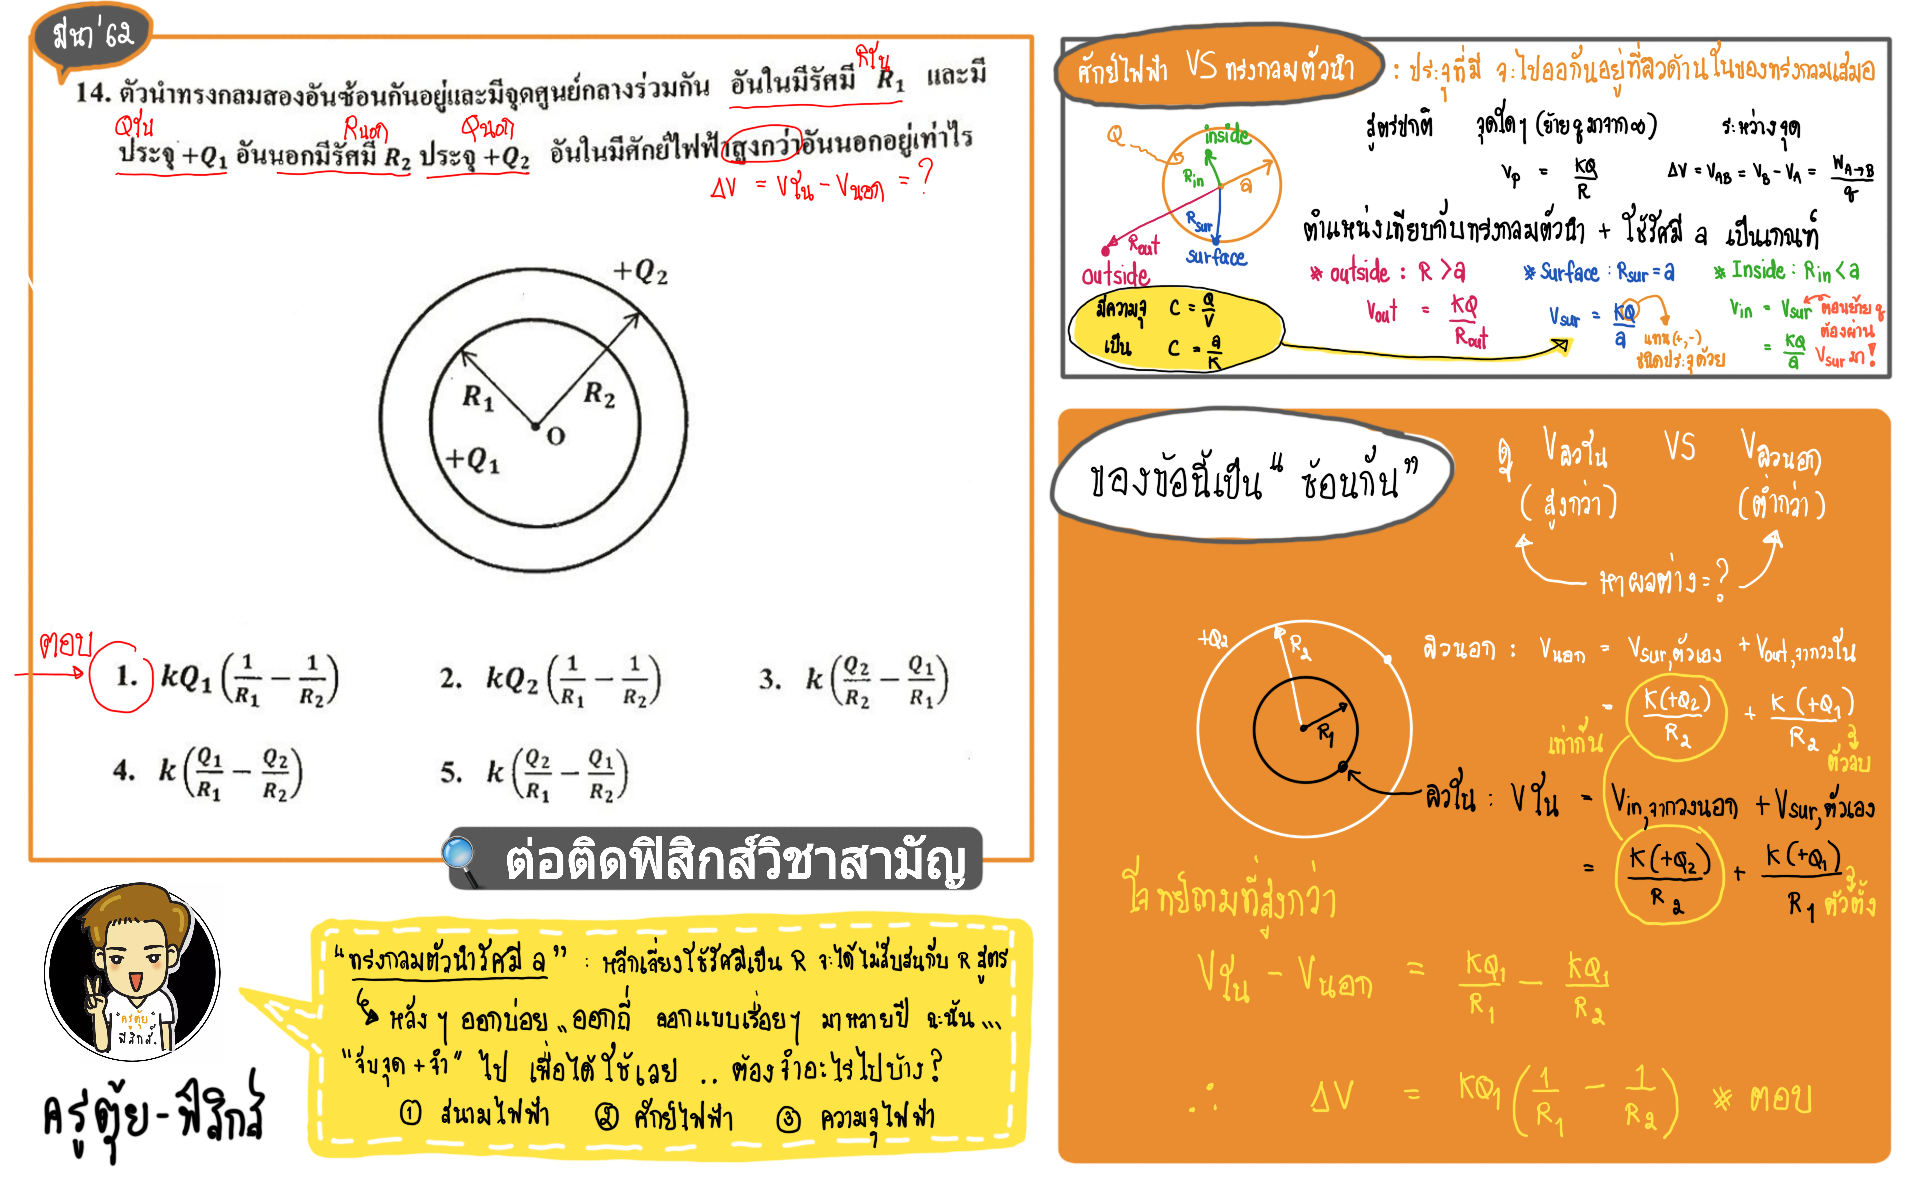 มีนา '62
14. ตัวนำทรงกลมสองอันซ้อนกันอยู่และมีจุดศูนย์กลางร่วมกัน อันในมีรัศมี R₁ และมี
Rใน
Qใน Rนอก Qนอก
ประจุ +Q₁ อันนอกมีรัศมี R₂ ประจุ +Q₂ อันในมีศักย์ไฟฟ้าสูงกว่าอันนอกอยู่เท่าไร
ΔV = Vใน - Vนอก = ?
+Q₂
R₁ R₂
O
+Q₁
ตอบ
1. kQ₁(1/R₁ − 1/R₂) 2. kQ₂(1/R₁ − 1/R₂) 3. k(Q₂/R₂ − Q₁/R₁)
4. k(Q₁/R₁ − Q₂/R₂) 5. k(Q₂/R₁ − Q₁/R₂)
ต่อติดฟิสิกส์วิชาสามัญ
ครูตุ้ย
ฟิสิกส์
ครูตุ้ย-ฟิสิกส์
"ทรงกลมตัวนำรัศมี a" : หลีกเลี่ยงใช้รัศมีเป็น R จะได้ไม่สับสนกับ R สูตร
หลัง ๆ ออกบ่อย ออกถี่ ออกแบบเรื่อย ๆ มาหลายปี ฉะนั้น ...
"จับจุด + จำ" ไป เพื่อได้ใช้เลย .. ต้องจำอะไรไปบ้าง?
① สนามไฟฟ้า ② ศักย์ไฟฟ้า ③ ความจุไฟฟ้า
ศักย์ไฟฟ้า VS ทรงกลมตัวนำ : ประจุที่มี จะไปออกันอยู่ที่ผิวด้านในของทรงกลมเสมอ
Q inside
Rin a
Rsur
Rout surface
outside
สูตรปกติ จุดใดๆ (ย้าย q มาจาก ∞) ระหว่างจุด
Vp = KQ/R ΔV = VAB = VB - VA = WA→B/q
ตำแหน่งเทียบกับทรงกลมตัวนำ + ใช้รัศมี a เป็นเกณฑ์
* outside : R > a * Surface : Rsur = a * Inside : Rin < a
Vout = KQ/Rout Vsur = KQ/a Vin = Vsur ตอนย้าย q ต้องผ่าน
แทน (+,-) ชนิดประจุด้วย = KQ/a Vsur มา!
มีความจุ C = Q/V
เป็น C = a/K
ของข้อนี้เป็น "ซ้อนกัน"
ดู Vผิวใน VS Vผิวนอก
(สูงกว่า) (ต่ำกว่า)
หาผลต่าง = ?
+Q₂ R₂
R₁
ผิวนอก : Vนอก = Vsur,ตัวเอง + Vout,จากวงใน
= K(+Q₂)/R₂ + K(+Q₁)/R₂ ตัวลบ
เท่ากัน
ผิวใน : Vใน = Vin,จากวงนอก + Vsur,ตัวเอง
= K(+Q₂)/R₂ + K(+Q₁)/R₁ ตัวตั้ง
โจทย์ถามที่สูงกว่า
Vใน - Vนอก = KQ₁/R₁ - KQ₁/R₂
∴ ΔV = KQ₁(1/R₁ - 1/R₂) * ตอบ